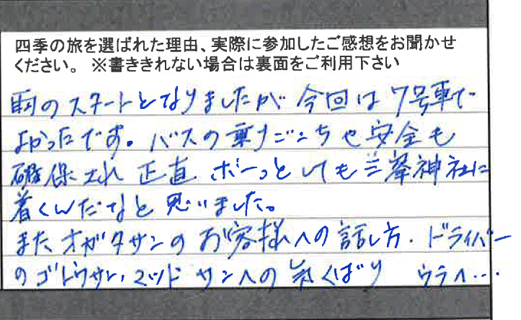 四季の旅を選ばれた理由、実際に参加したご感想をお聞かせ
ください。 ※書ききれない場合は裏面をご利用下さい
雨のスタートとなりましたが 今回は 7号車で
よかったです。バスの乗りごこちや安全も
確保され 正直 ボーっとしても三峯神社に
着くんだなと思いました。
また オガタサンの お客様への 話し方、ドライバー
のゴトウサン、マツド サンへの 気くばり ウラへ…